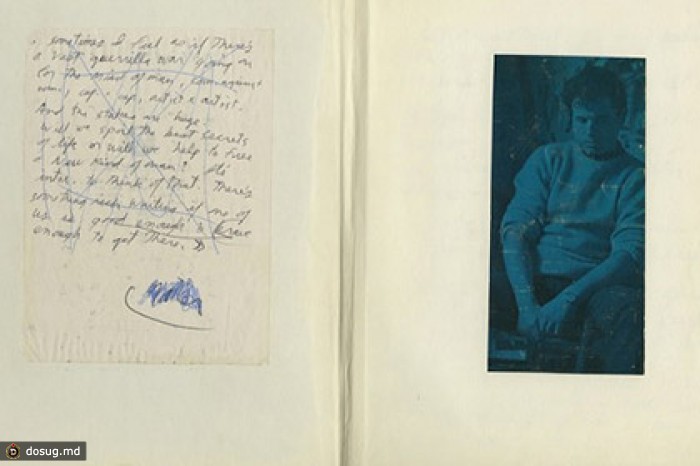 sometimes I feel as if there's
a vast guerrilla war going on
for the mind of man,
And the stakes are huge.
Will we spoil the best secrets
of life or will we help to free
a new kind of man? It's
to think of that. There's
something really waiting if one of
us is good enough & brave
enough to get there.
dosug.md